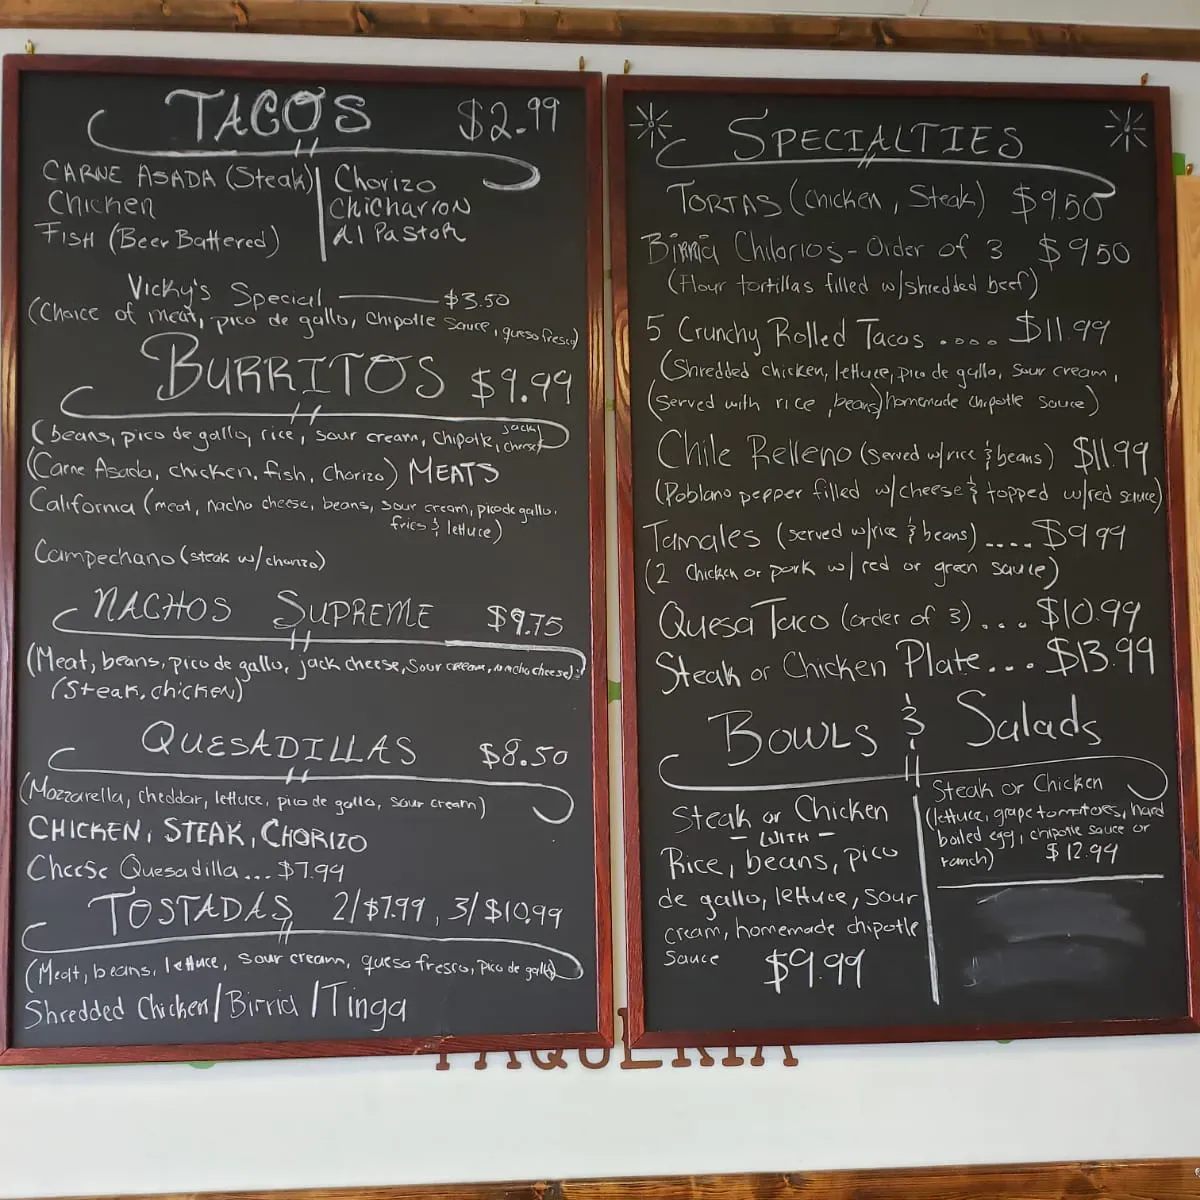 TACOS $2.99
CARNE ASADA (Steak)
Chicken
FISH (Beer Battered)
Chorizo
Chicharron
Al Pastor
Vicky's Special $3.50
(Choice of meat, pico de gallo, chipotle sauce, queso fresco)
BURRITOS $9.99
(beans, pico de gallo, rice, sour cream, chipotle, jack cheese)
(Carne Asada, chicken, fish, Chorizo) MEATS
California (meat, nacho cheese, beans, sour cream, pico de gallo,
fries & lettuce)
Campechano (steak w/ chorizo)
NACHOS SUPREME $9.75
(Meat, beans, pico de gallo, jack cheese, sour cream, nacho cheese)
(Steak, chicken)
QUESADILLAS $8.50
(Mozzarella, cheddar, lettuce, pico de gallo, sour cream)
CHICKEN, STEAK, CHORIZO
Cheese Quesadilla... $7.99
TOSTADAS 2/$7.99, 3/$10.99
(Meat, beans, lettuce, sour cream, queso fresco, pico de gallo)
Shredded Chicken/Birria/Tinga
SPECIALTIES
TORTAS (Chicken, Steak) $9.50
Birria Chilorios - Order of 3 $9.50
(Flour tortillas filled w/shredded beef)
5 Crunchy Rolled Tacos .... $11.99
(Shredded chicken, lettuce, pico de gallo, sour cream,
(served with rice, beans) homemade chipotle sauce)
Chile Relleno (served w/rice & beans) $11.99
(Poblano pepper filled w/cheese & topped w/red sauce)
Tamales (served w/rice & beans) .... $9.99
(2 chicken or pork w/ red or green sauce)
Quesa Taco (order of 3)... $10.99
Steak or Chicken Plate... $13.99
BOWLS & Salads
Steak or Chicken
- WITH -
Rice, beans, pico
de gallo, lettuce, sour
cream, homemade chipotle
sauce $9.99
Steak or Chicken
(lettuce, grape tomatoes, hard
boiled egg, chipotle sauce or
ranch) $12.99
TAQUERIA